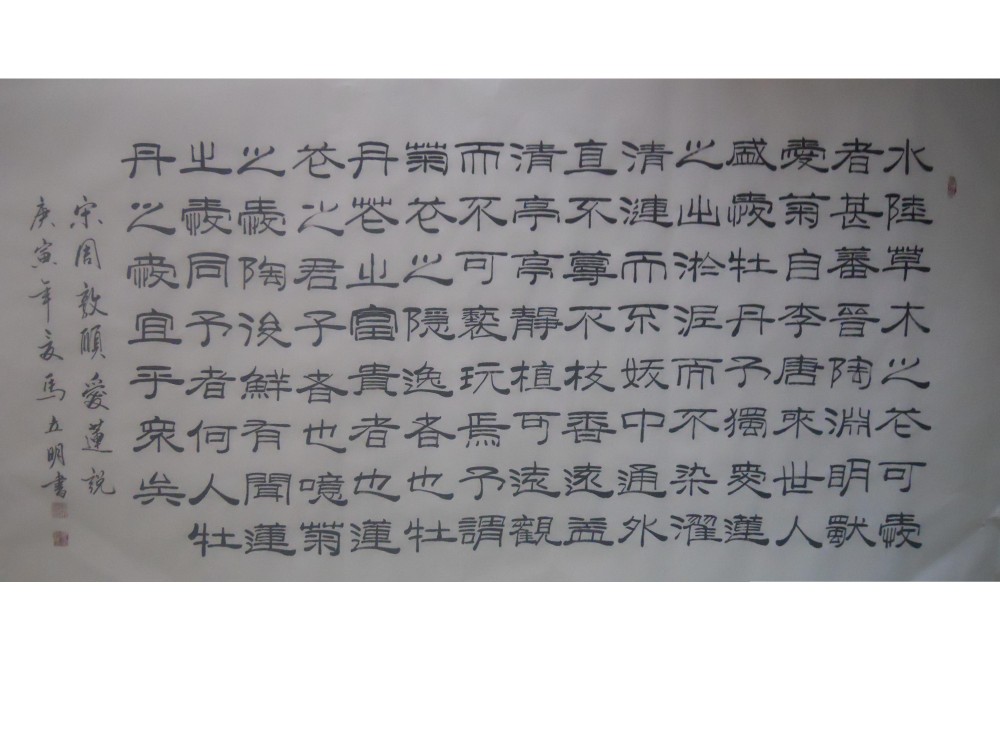 水陸草木之花可愛
者甚蕃晉陶淵明獨
愛菊自李唐來世人
盛愛牡丹予獨愛蓮
之出淤泥而不染濯
清漣而不妖中通外
直不蔓不枝香遠益
清亭亭靜植可遠觀
而不可褻玩焉予謂
菊花之隱逸者也牡
丹花之富貴者也蓮
花之君子者也噫菊
之愛陶後鮮有聞蓮
之愛同予者何人牡
丹之愛宜乎眾矣
宋周敦頤愛蓮說
庚寅年夏馬五明書